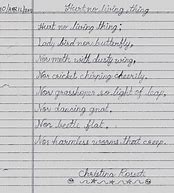 Hurt no living thing
Hurt no living thing;
Lady bird nor butterfly,
Nor moth with dusty wing,
Nor cricket chirping cheerily,
Nor grasshoper so light of leap,
Nor dancing gnat,
Nor beetle flat,
Nor harmless worms that creep.
Christina Rosetti